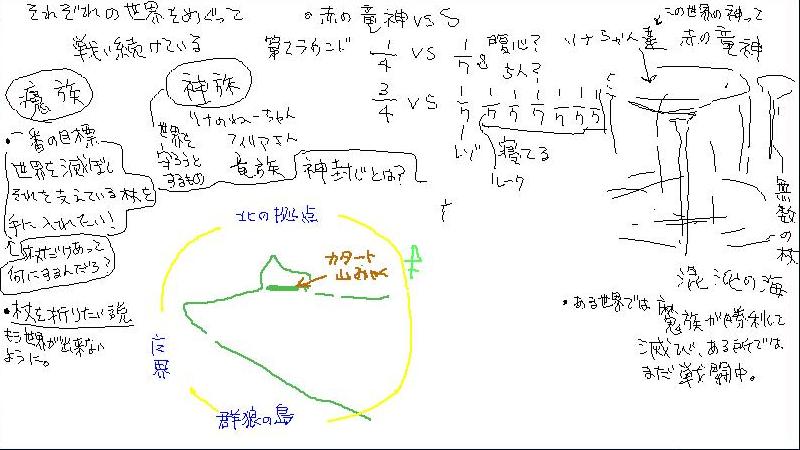 それぞれの世界をめぐって
戦い続けている
魔族
神族
・一番の目標
世界を滅ぼし
それを支えている杖を
手に入れたい!
杖だけあって
何にするんだろ?
・杖を折りたい説
もう世界が出来ない
ように。
世界を
守ろうと
するもの
リナのねーちゃん
フィリアさん
竜族
神封じとは?
赤の竜神 vs S
第一ラウンド
1/4 vs 1/7
腹心?
5人?
3/4 vs 1/7 1/7 1/7 1/7 1/7 1/7
レゾ
寝てる
ルーク
北の拠点
カタート
山みゃく
群狼の島
リナちゃん達
この世界の神って
赤の竜神
無数の杖
混沌の海
・ある世界では
魔族が勝利して
滅び、ある所では
まだ戦闘中。